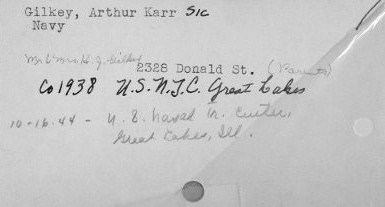 Gilkey, Arthur Karr S1c
Navy
Mr & Mrs H. J. Gilkey
2328 Donald St. (Parents)
Co 1938 U.S.N.T.C. Great Lakes
10-16-44 - U.S. Naval Tr. Center,
Great Lakes, Ill.